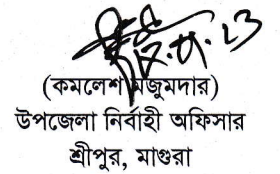 (কমলেশ মজুমদার)
উপজেলা নির্বাহী অফিসার
শ্রীপুর, মাগুরা